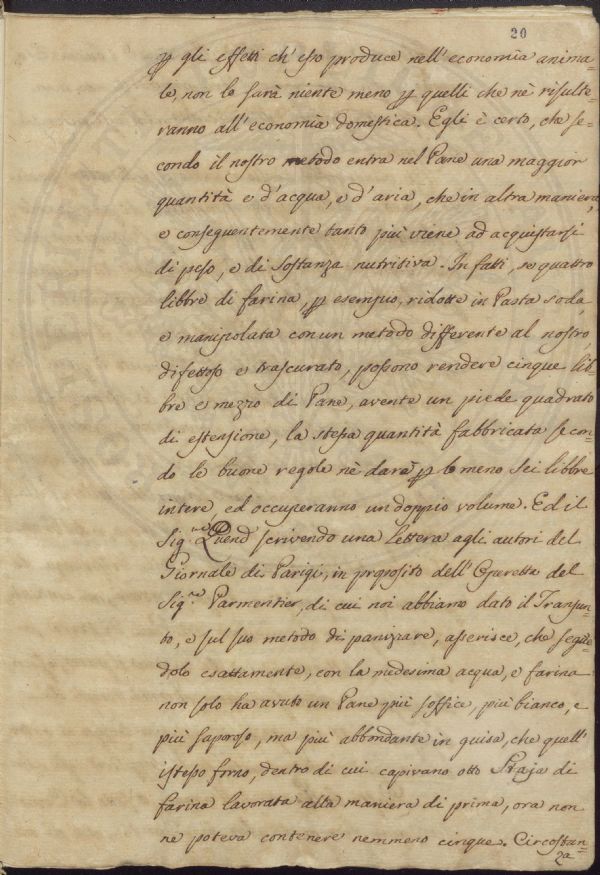 20
p gli effetti ch'esso produce nell'economia anima=
le, non lo sarà niente meno p quelli che nè risulte=
ranno all'economia domestica. Egli è certo, che se=
condo il nostro metodo entra nel Pane una maggior
quantità e d'acqua, e d'aria, che in altra maniera,
e conseguentemente tanto più viene ad acquistarsi
di peso, e di sostanza nutritiva. In fatti, se quattro
libbre di farina, p esempio, ridotte in Pasta soda,
e manipolata con un metodo differente al nostro,
difettoso e trascurato, possono rendere cinque lib
bre e mezzo di Pane, avente un piede quadrato
di estensione, la stessa quantità fabbricata secon=
do le buone regole nè darà p lo meno sei libbre
intere, ed occuperanno un doppio volume. Ed il
Sig.re Quend scrivendo una Lettera agli autori del
Giornale di Parigi, in proposito dell'Operetta del
Sig.re Parmentier, di cui noi abbiamo dato il Transun=
to, e sul suo metodo di panizzare, asserisce, che seguē
dolo esattamente, con la medesima acqua, e farina
non solo ha avuto un Pane più soffice, più bianco, e
più saporoso, ma più abbondante in guisa, che quell'
istesso forno, dentro di cui capivano otto Staja di
farina lavorata alla maniera di prima, ora non
ne poteva contenere nemmeno cinque. Circostan=
za